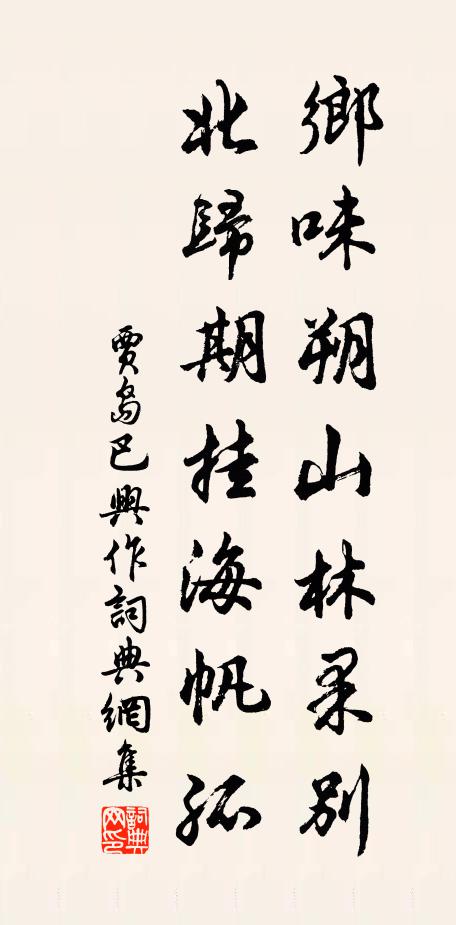 鄉味朔山林果別
北歸期挂海帆孤
賈島巴興作詞典網集
詞典網印